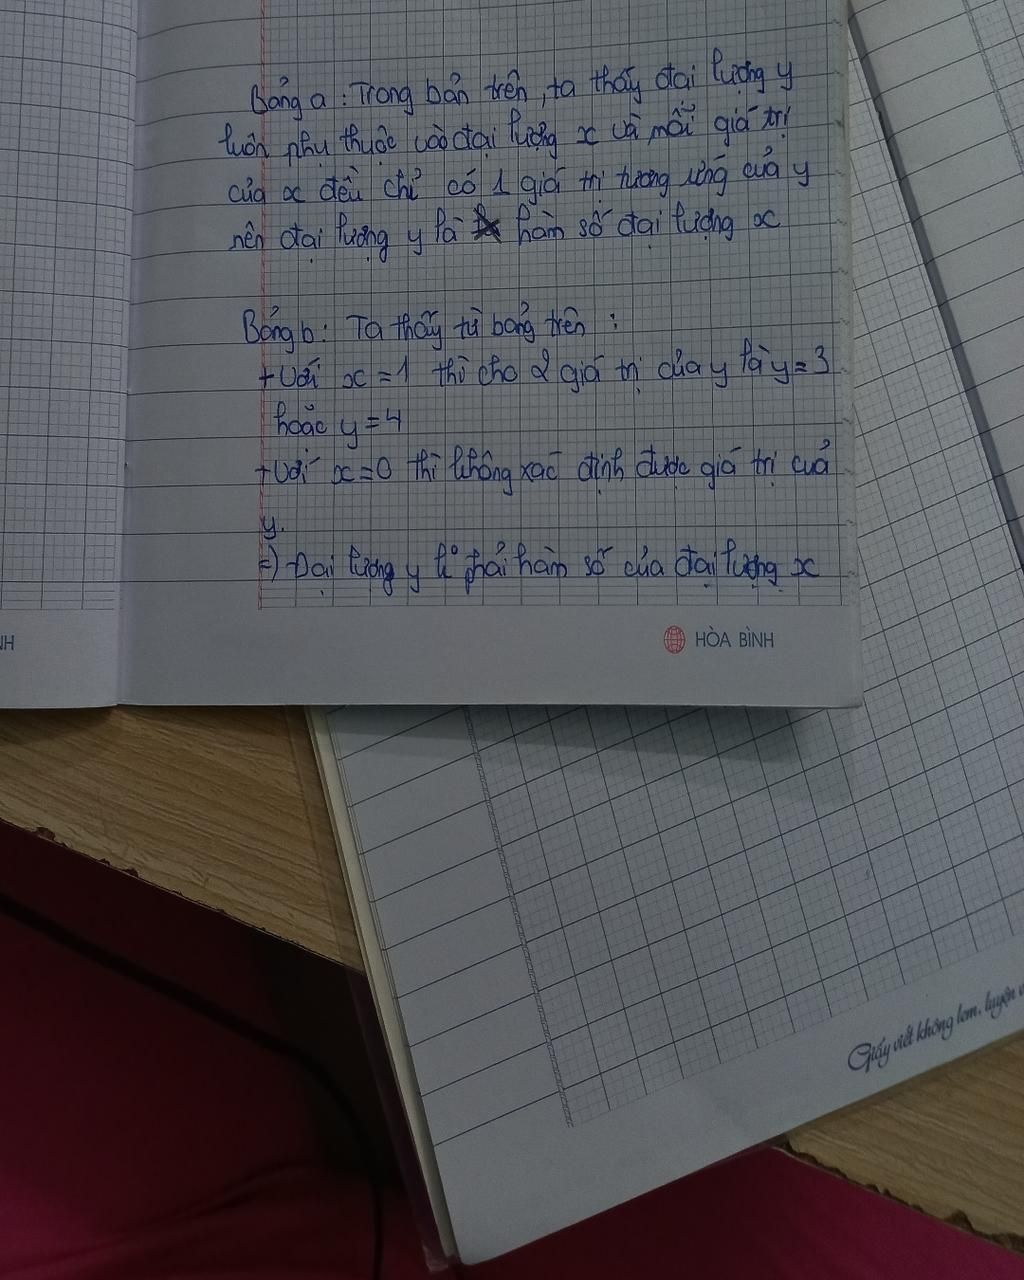 Bảng a : Trong bản trên, ta thấy đại lượng y
luôn phụ thuộc vào đại lượng x và mỗi giá trị
của x đều chỉ có 1 giá trị tương ứng của y
nên đại lượng y là hàm số đại lượng x
Bảng b : Ta thấy từ bảng trên :
+ Với x = 1 thì cho 2 giá trị của y là y = 3
hoặc y = 4
+ Với x = 0 thì không xác định được giá trị của
y.
=) Đại lượng y k° phải hàm số của đại lượng x
HÒA BÌNH
NH
Giấy viết không lem, luyện